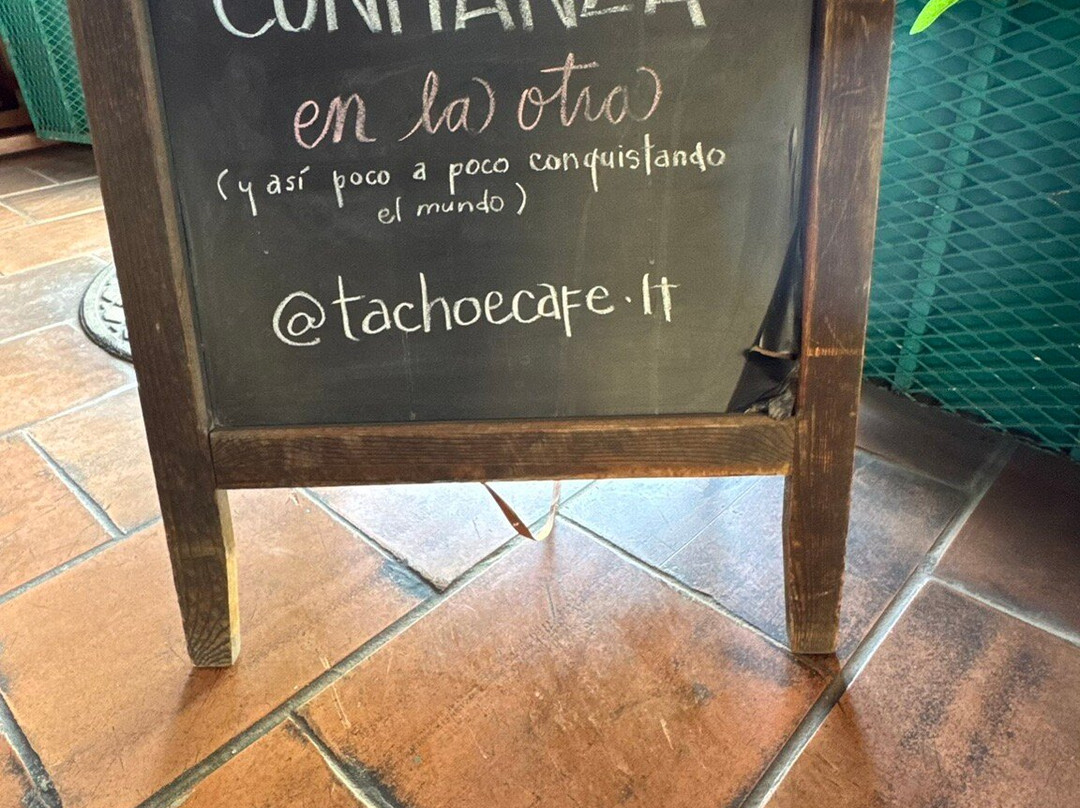 CONFIANZA
en la otra
(y así poco a poco conquistando
el mundo)
@tachoecafe.lt